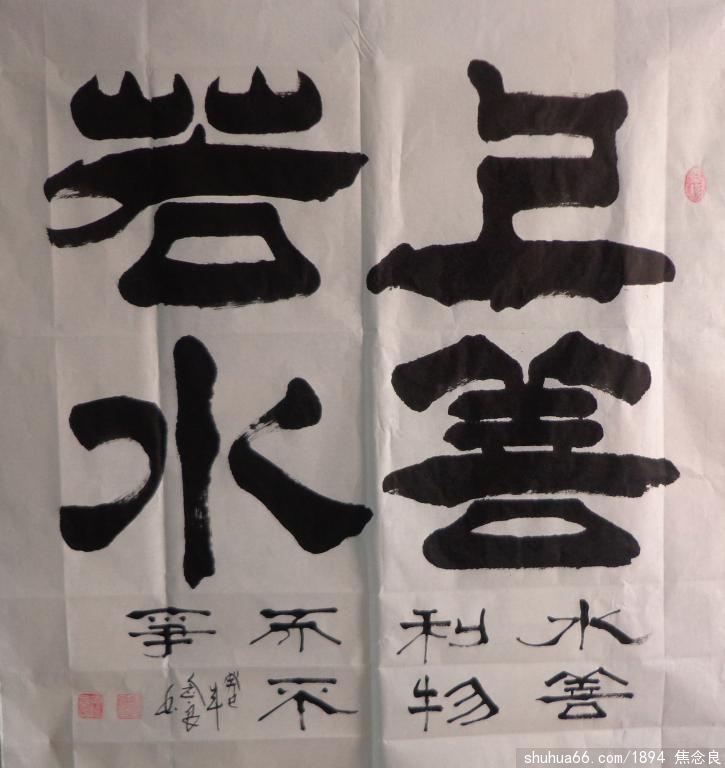 上善
若水
水善
利物
而不
爭
癸巳年
念良
书
shuhua66.com/1894 焦念良